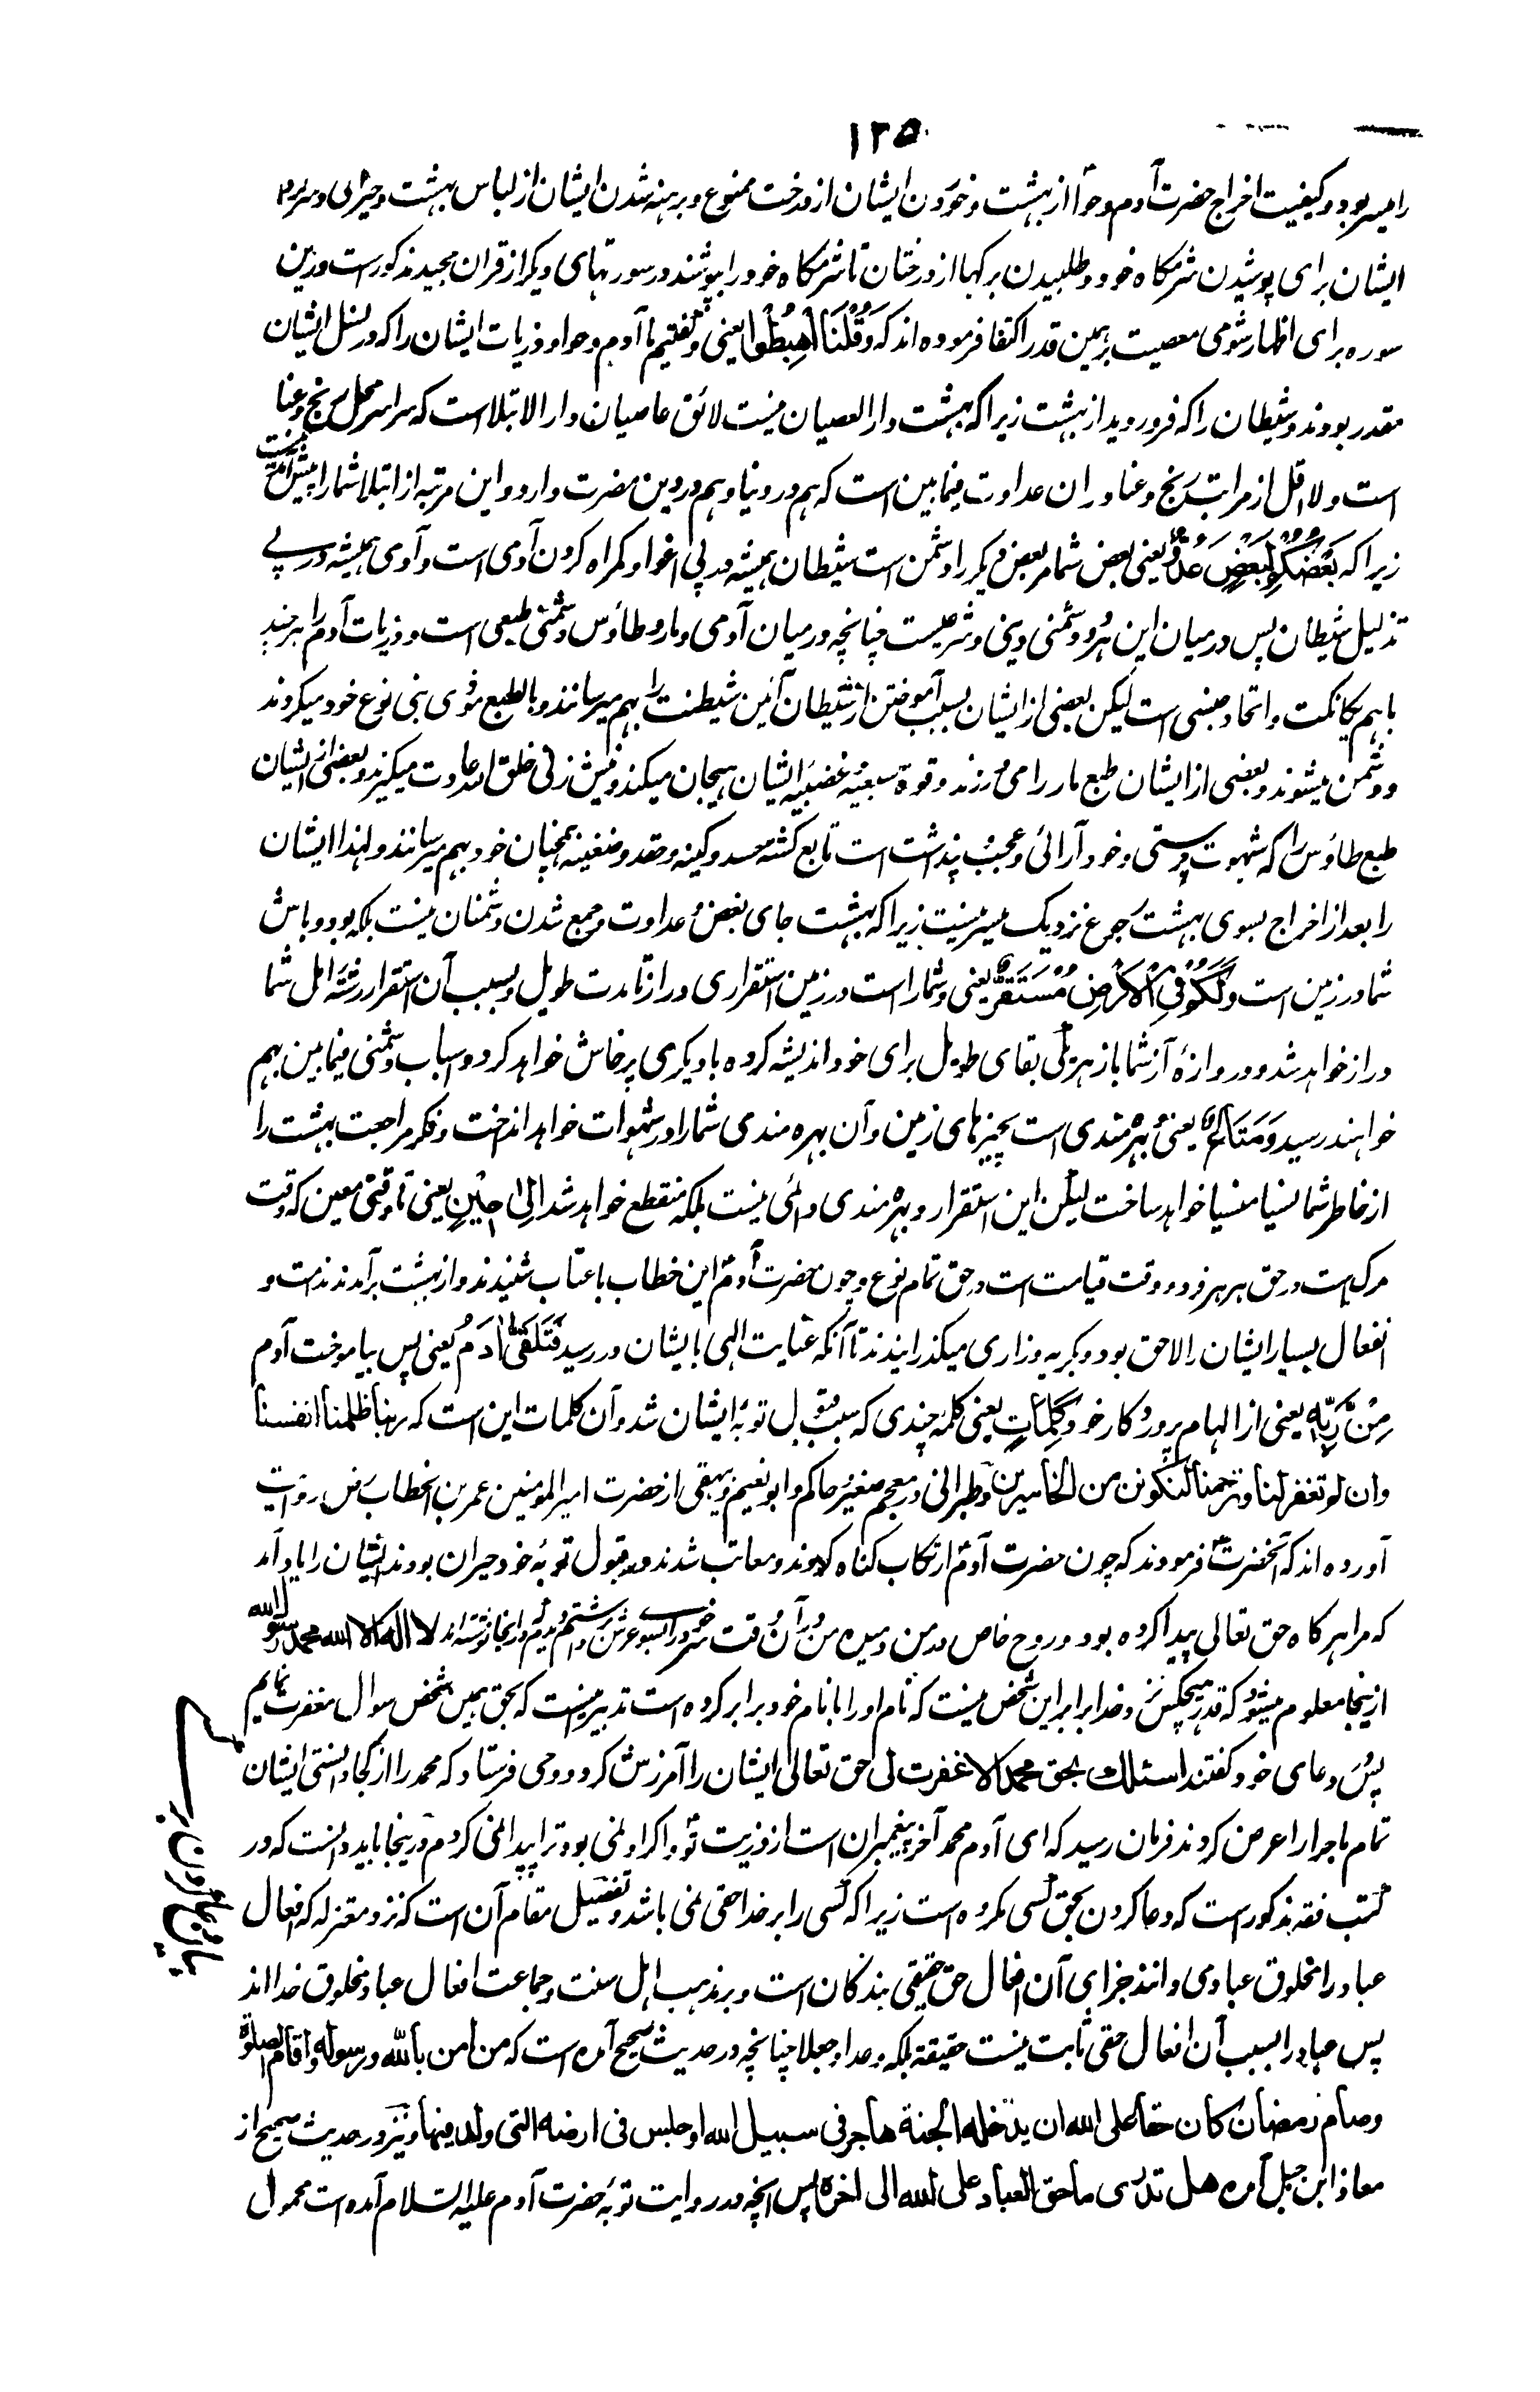 ۱۲۵
را میسر بود و کیفیت اخراج حضرت آدم و حوا از بهشت و خوردن ایشان از درخت ممنوع و برهنه شدن ایشان از لباس بهشت و حیرانی و سراسیمگی
ایشان برای پوشیدن شرمگاه خود و طلبیدن برگها از درختان تا شرمگاه خود را بپوشند در سورتهای دیگر از قران مجید مذکور است و درین
سوره برای اظهار شومی معصیت بر همین قدر اکتفا فرموده اند که وَقُلْنَا اهْبِطُوا یعنی و گفتیم ما آدم و حوا و ذریات ایشان را که در نسل ایشان
مقدر بودند و شیطان را که فرو روید از بهشت زیرا که بهشت دار العصیان نیست لائق عاصیان دار الابتلا است که سراسر محل رنج و عنا
است و لا اقل از مراتب رنج و عنا در ان عداوت فیمابین است که هم در دنیا و هم در دین مضرت دارد و این مرتبه از ابتلا شما را پیش آمدنیست
زیرا که بَعْضُكُمْ لِبَعْضٍ عَدُوٌّ یعنی بعض شما مر بعض دیگر را دشمن است شیطان همیشه در پی اغوا و گمراه کردن آدمی است و آدمی همیشه در پی
تذلیل شیطان پس در میان این هر دو دشمنی دینی و شرعیست چنانچه در میان آدمی و مار و طاؤس دشمنی طبعی است و ذریات آدم را هر چند
باهم یگانگت و اتحاد جنسی است لیکن بعضی از ایشان بسبب آموختن از شیطان آئین شیطنت را بهم میرسانند و بالطبع موذی بنی نوع خود میگردند
و دشمن میشوند و بعضی از ایشان طبع مار را می ورزند و قوة سبعیه غضبیه ایشان هیجان میکند و نیش زنی خلق الله عادت میگیرند و بعضی از ایشان
طبع طاؤس را که شهوت پرستی و خود آرائی و عجب پنداشت است تابع گشته حسد و کینه و حقد و ضغینه همچنان خود بهم میرسانند و لهذا ایشان
را بعد از اخراج بسوی بهشت رجوع نزدیک میسر نیست زیرا که بهشت جای بغض و عداوت و جمع شدن دشمنان نیست بلکه بود و باش
شما در زمین است وَلَكُمْ فِي الْأَرْضِ مُسْتَقَرٌّ یعنی و شما را است در زمین استقراری دراز تا مدت طویل و بسبب آن استقرار رشته امل شما
دراز خواهد شد و دروازه آز شما باز هر یکی بقای طویل برای خود اندیشه کرده با دیگری پرخاش خواهد کرد و اسباب دشمنی فیمابین بهم
خواهند رسید وَمَتَاعٌ یعنی و بهره مندی است بچیزهای زمین و آن بهره مندی شما را در شهوات خواهد انداخت و فکر مراجعت بهشت را
از خاطر شما نسیا منسیا خواهد ساخت لیکن این استقرار و بهره مندی دائمی نیست بلکه منقطع خواهد شد اِلىٰ حِيْنٍ یعنی تا وقتی معین که وقت
مرگ است در حق هر هر فرد و وقت قیامت است در حق تمام نوع و چون حضرت آدم این خطاب با عتاب شنیدند و از بهشت برآمدند ندامت و
انفعال بسیار ایشان را لاحق بود و بگریه و زاری میگذرانیدند تا آنکه عنایت الهی بایشان در رسید فَتَلَقّٰى اٰدَمُ یعنی پس بیاموخت آدم
مِنْ رَّبِّهٖ یعنی از الهام پروردگار خود كَلِمَاتٍ یعنی کلمه چندی که سبب قبول توبهٔ ایشان شد و آن کلمات این است که ربنا ظلمنا انفسنا
وان لم تغفر لنا وترحمنا لنكونن من الخاسرین و طبرانی در معجم صغیر و حاکم و ابو نعیم و بیهقی از حضرت امیر المومنین عمر بن الخطاب رض روایت
آورده اند که آنحضرت ص فرمودند که چون حضرت آدم ارتکاب گناه کردند و معاتب شدند و در قبول توبهٔ خود حیران بودند ایشان را یاد آمد
که مرا هرگاه حق تعالی پیدا کرده بود و روح خاص در من دمیده من در آن وقت سر خود را بسوی عرش برداشتم و دیدم در اینجا نوشته اند لا اله الا الله محمد رسول الله
ازینجا معلوم میشود که قدر هیچکس نزد خدا برابر این شخص نیست که نام او را با نام خود برابر کرده است تدبیر اینست که بحق همین شخص سوال مغفرت نمایم
پس در دعای خود گفتند اسئلك بحق محمد الا غفرت لی حق تعالی ایشان را آمرزش کرد و وحی فرستاد که محمد را از کجا دانستی ایشان
تمام ماجرا را عرض کردند فرمان رسید که ای آدم محمد آخر پیغمبران است از ذریت تو و اگر او نمی بود ترا پیدا نمی کردم و در ینجا باید دانست که در
کتب فقه مذکور است که دعا کردن بحق کسی مکروه است زیرا که کسی را بر خدا حقی نمی باشد و تفصیل مقام آن است که نزد معتزله که افعال
عباد را مخلوق عباد می دانند جزای آن افعال حق حقیقی بندگان است و بر مذهب اهل سنت و جماعت افعال عباد مخلوق خدا اند
پس عباد را بسبب آن افعال حقی ثابت نیست حقیقة بلکه وعدا و جعلا چنانچه در حدیث صحیح آمده است که من امن بالله ورسوله واقام الصلوة
وصام رمضان كان حقا على الله ان یدخله الجنة هاجر فی سبیل الله او جلس فی ارضه التی ولد فیها و نیز در حدیث صحیح از
معاذ ابن جبل آمده هل تدری ما حق العباد على الله الى اخره پس آنچه در روایت توبهٔ حضرت آدم علیه السلام آمده است محمول